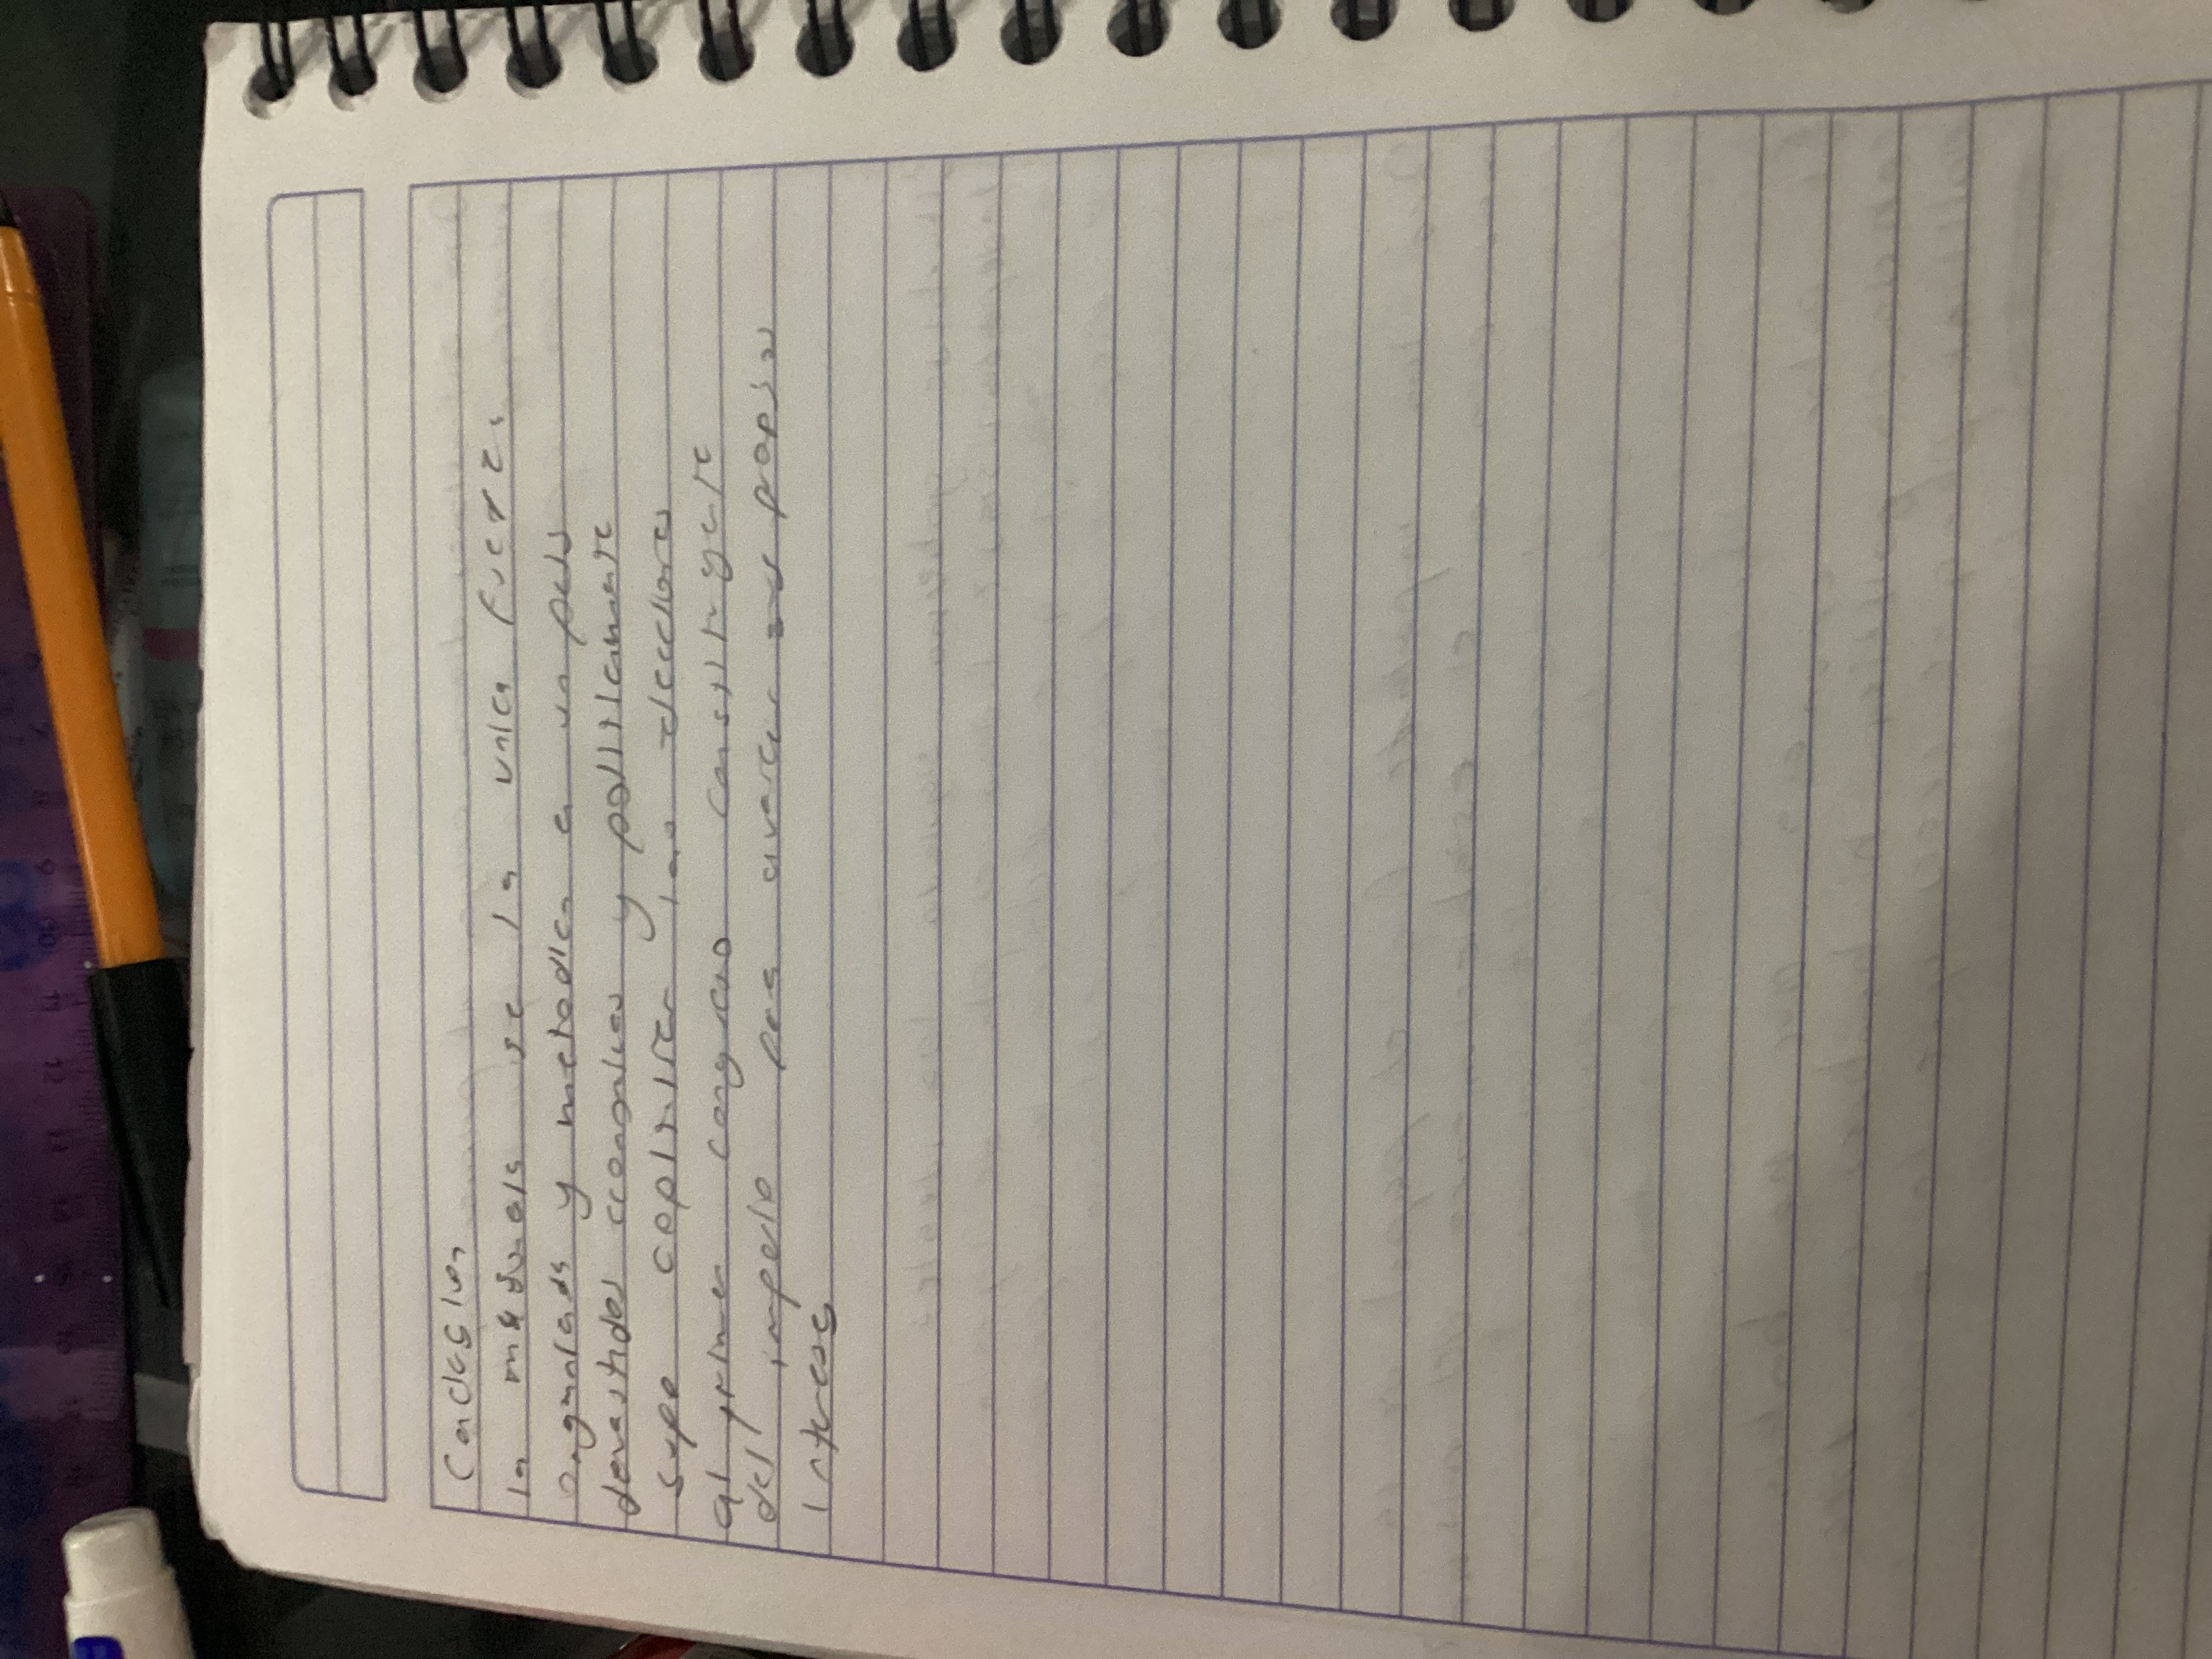 Conclusion
la se la unica fuerza
y metodica a un pais
devastado economica y politicamente
supo capitzar las elecciones
al primer congreso constituyente
del imperio para avanzar sus propios
Interes